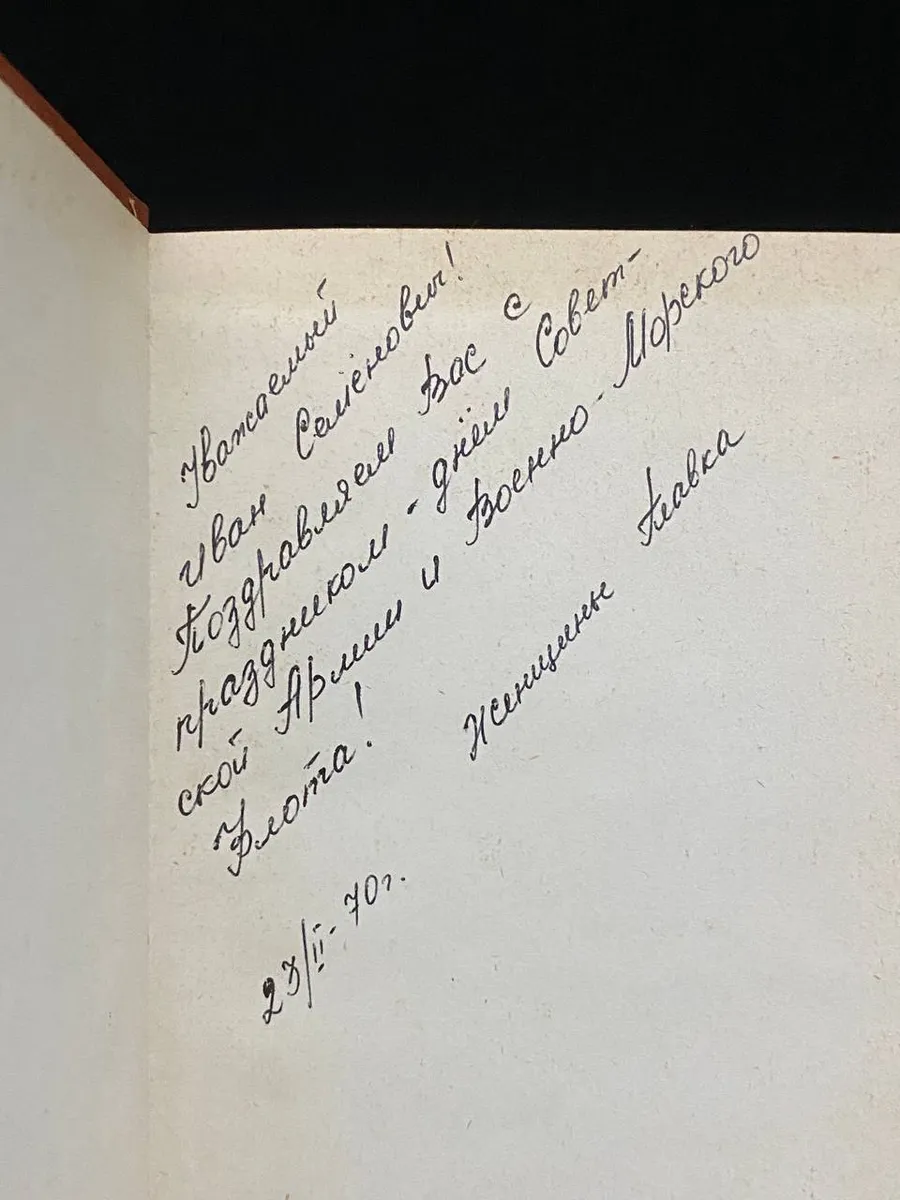 Уважаемый
Иван Семёнович!
Поздравляем Вас с
праздником - днём Совет-
ской Армии и Военно-Морского
Флота!
Женщины Главка
23/II-70г.